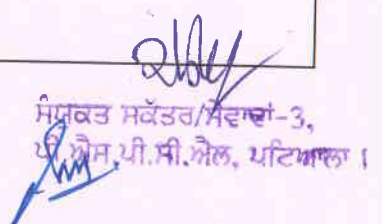 ਸੰਯੁਕਤ ਸਕੱਤਰ/ਸੇਵਾਵਾਂ-3,
ਪੀ.ਐਸ.ਪੀ.ਸੀ.ਐਲ, ਪਟਿਆਲਾ।